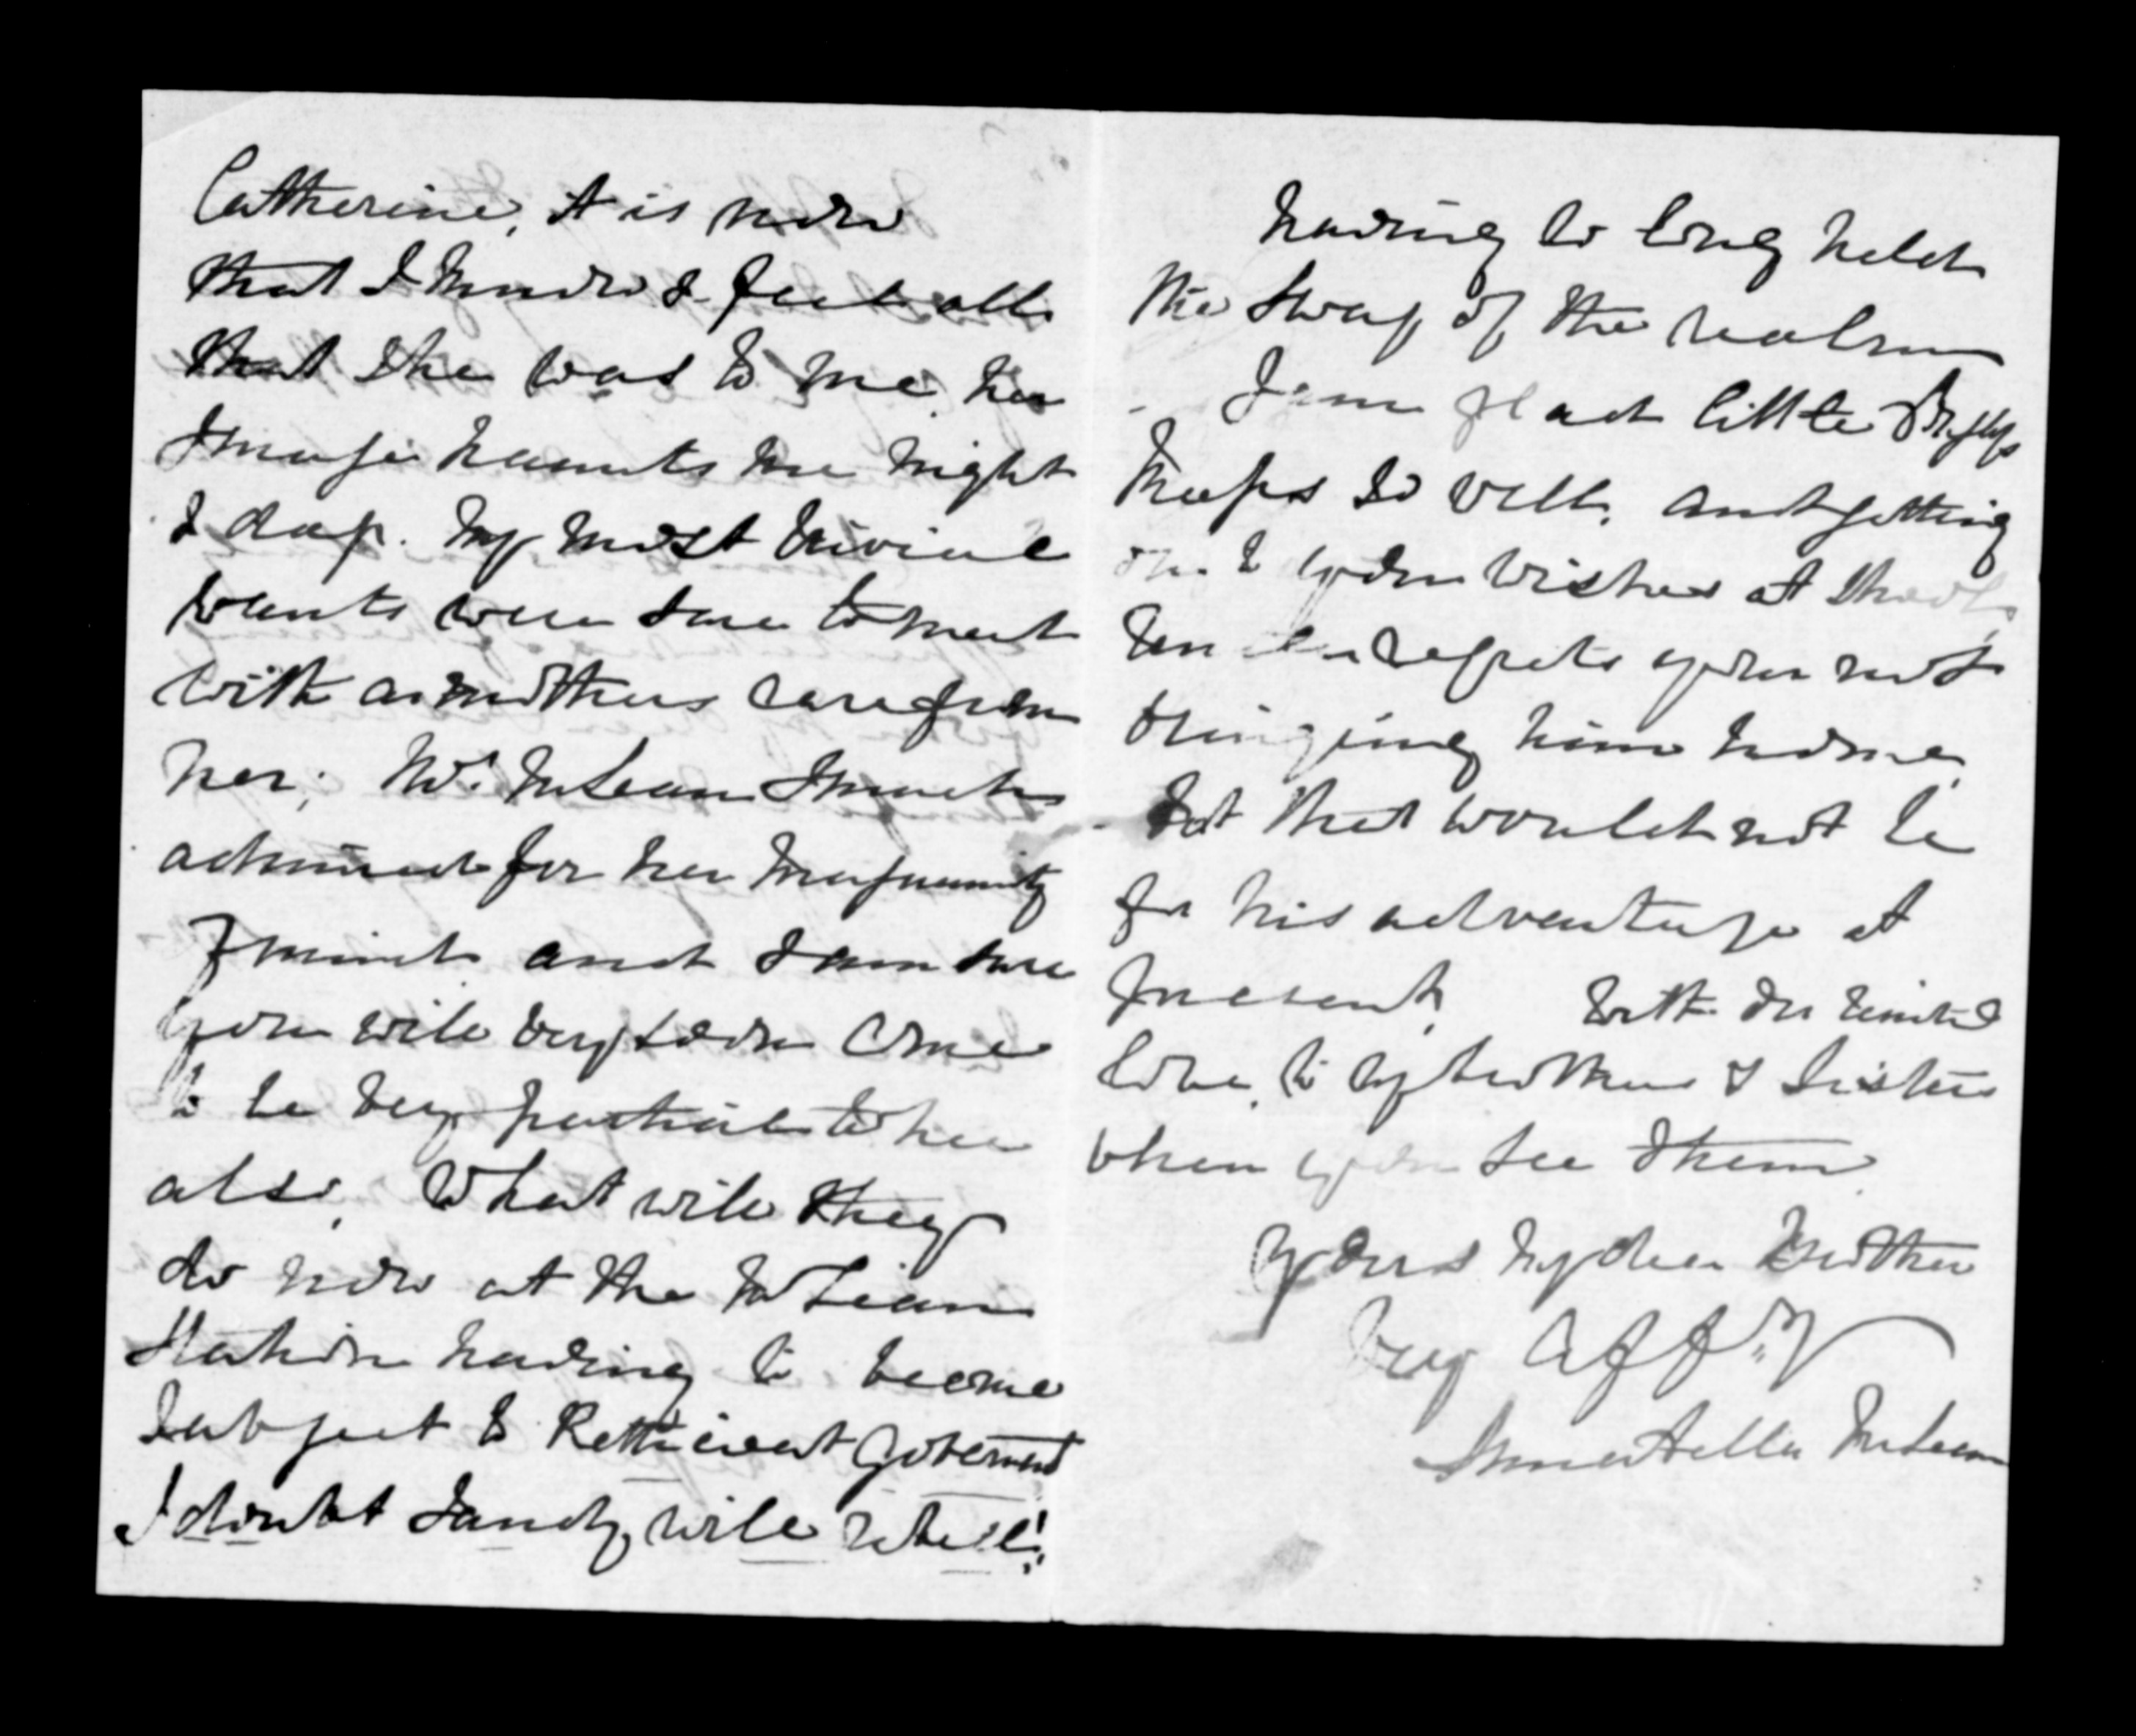 Catherine, it is now
that I know & feel all
that she was to me, her
Image haunts me night
& day. My most trivial
wants were sure to meet
with a mothers care from
her; Mr. McLean I much
admired for her magnanimity
of mind and I am sure
you will very soon come
to be very partial to her
also, What will they
do now at the McLean
Station having to become
subject to Government
I doubt Sandy will rebel!
having so long held
the sway of the realm
I am glad little
keeps so well, and getting
on to your wishes at school
regrets your not
bringing him home,
but that would not be
for his advantage at
present, With our united
love, to my brothers & sisters
when you see them,
Yours my dear Brother
very affly
Annabella McLean